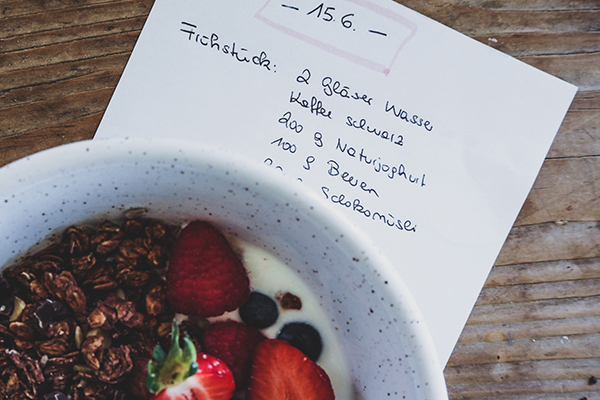 - 15.6. -
Frühstück: 2 Gläser Wasser
Kaffee schwarz
200 g Naturjoghurt
100 g Beeren
g Schokomüsli